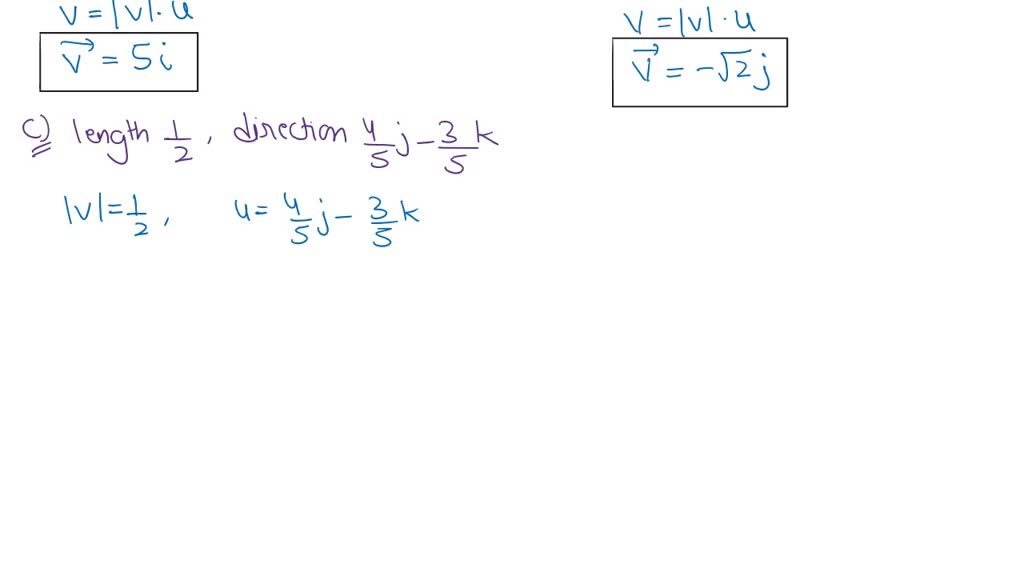 v = |v| · u
v⃗ = 5i
v = |v| · u
v⃗ = -√2 j
c) length 1/2 , direction 4/5 j - 3/5 k
|v| = 1/2 , u = 4/5 j - 3/5 k